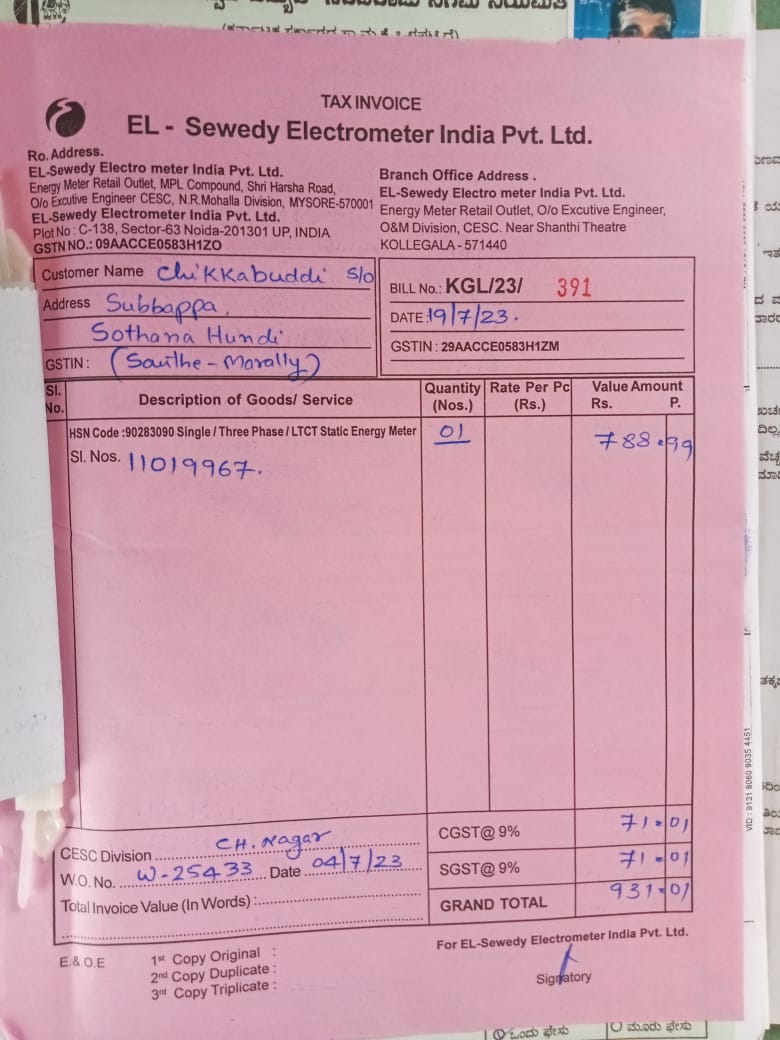 (ಕರ್ನಾಟಕ ಸರ್ಕಾರದ
TAX INVOICE
EL - Sewedy Electrometer India Pvt. Ltd.
Ro. Address.
EL-Sewedy Electro meter India Pvt. Ltd.
Energy Meter Retail Outlet, MPL Compound, Shri Harsha Road,
O/o Excutive Engineer CESC, N.R.Mohalla Division, MYSORE-570001
EL-Sewedy Electrometer India Pvt. Ltd.
Plot No : C-138, Sector-63 Noida-201301 UP, INDIA
GSTN NO.: 09AACCE0583H1ZO
Branch Office Address .
EL-Sewedy Electro meter India Pvt. Ltd.
Energy Meter Retail Outlet, O/o Excutive Engineer,
O&M Division, CESC. Near Shanthi Theatre
KOLLEGALA - 571440
Customer Name Chikkabuddi S/o
Address Subbappa,
Sothana Hundi
GSTIN : (Santhe - Marally)
BILL No.: KGL/23/ 391
DATE :19/7/23.
GSTIN : 29AACCE0583H1ZM
Sl. No. Description of Goods/ Service Quantity (Nos.) Rate Per Pc (Rs.) Value Amount Rs. P.
HSN Code :90283090 Single / Three Phase / LTCT Static Energy Meter 01 788.99
Sl. Nos. 11019967.
CESC Division CH. Nagar
W.O. No. W-25433 Date 04/7/23
Total Invoice Value (In Words) :
CGST@ 9% 71=01
SGST@ 9% 71=01
GRAND TOTAL 931=01
E.&.O.E
1st Copy Original :
2nd Copy Duplicate :
3rd Copy Triplicate :
For EL-Sewedy Electrometer India Pvt. Ltd.
Signatory
VID : 9131 8060 9035 4451
ಒಂದು ಫೇಸು
ಮೂರು ಫೇಸು